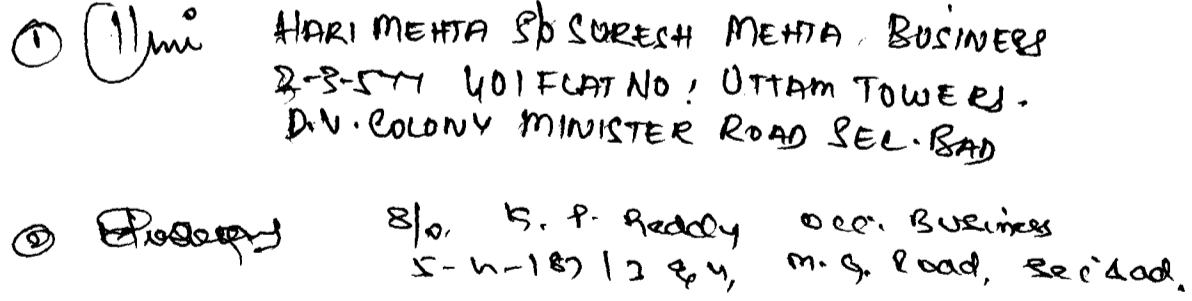 ① HARI MEHTA S/o SURESH MEHTA. BUSINESS
2-3-577 401 FLAT NO: UTTAM TOWERS.
D.V. COLONY MINISTER ROAD SEC. BAD
② S/o. K. P. Reddy occ. Business
5-4-187/3 & 4, M. G. Road, Sec'bad.